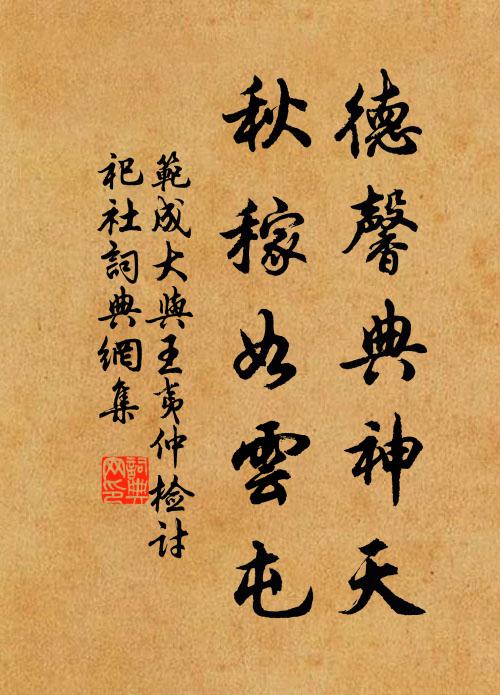 德馨典神天
秋稼如雲屯
範成大與王夷仲檢討
祀社詞典網集
詞典
网印